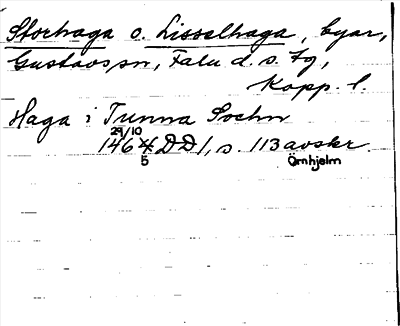 Storhaga o. Lisselhaga, byar,
Gustavs sn, Falu d. s. fg,
Kopp. l.
Haga i Tunna Sochn
29/10
1464 DD 1, s. 113 avskr.
5 Örnhjelm